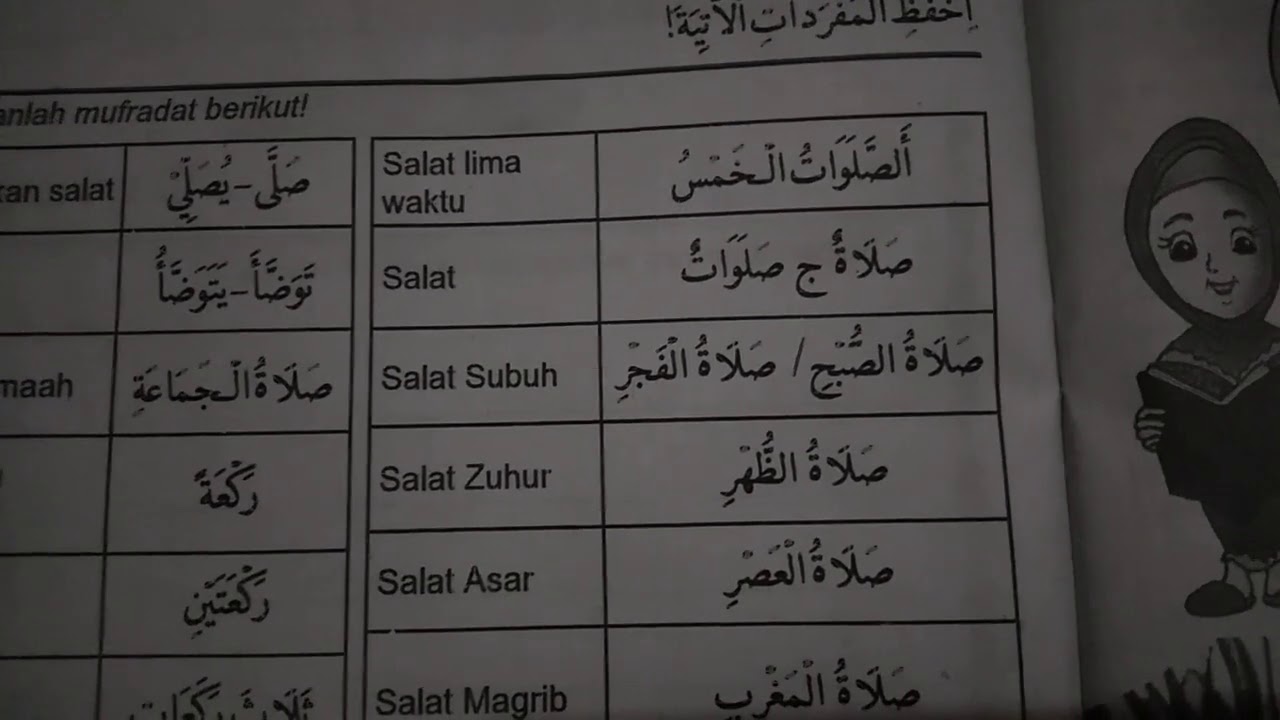 اِحْفَظِ الْمُفْرَدَاتِ الْآتِيَةَ!
mufradat berikut!
salat
صَلَّى - يُصَلِّيْ
تَوَضَّأَ - يَتَوَضَّأُ
صَلَاةُ الْجَمَاعَةِ
رَكْعَةً
رَكْعَتَيْنِ
ثَلَاثَ رَكَعَاتٍ
Salat lima
waktu
أَلصَّلَوَاتُ الْخَمْسُ
Salat
صَلَاةٌ ج صَلَوَاتٌ
Salat Subuh
صَلَاةُ الصُّبْحِ / صَلَاةُ الْفَجْرِ
Salat Zuhur
صَلَاةُ الظُّهْرِ
Salat Asar
صَلَاةُ الْعَصْرِ
Salat Magrib
صَلَاةُ الْمَغْرِبِ